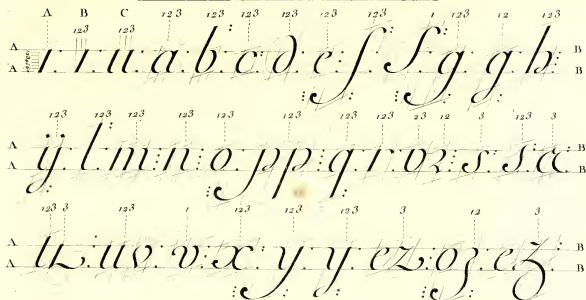 A B C 123 123 123 123 123 123 1 123 12 123
123 123
A ı ı u a b c d e ſ ſ g g h B
A B
123 123 123 123 123 123 123 23 12 3 123 3
A ÿ l m n o p p q r o z s s a B
A B
123 3 123 1 123 123 123 3 12 3
A u v v x y y e z o z e z B
A B